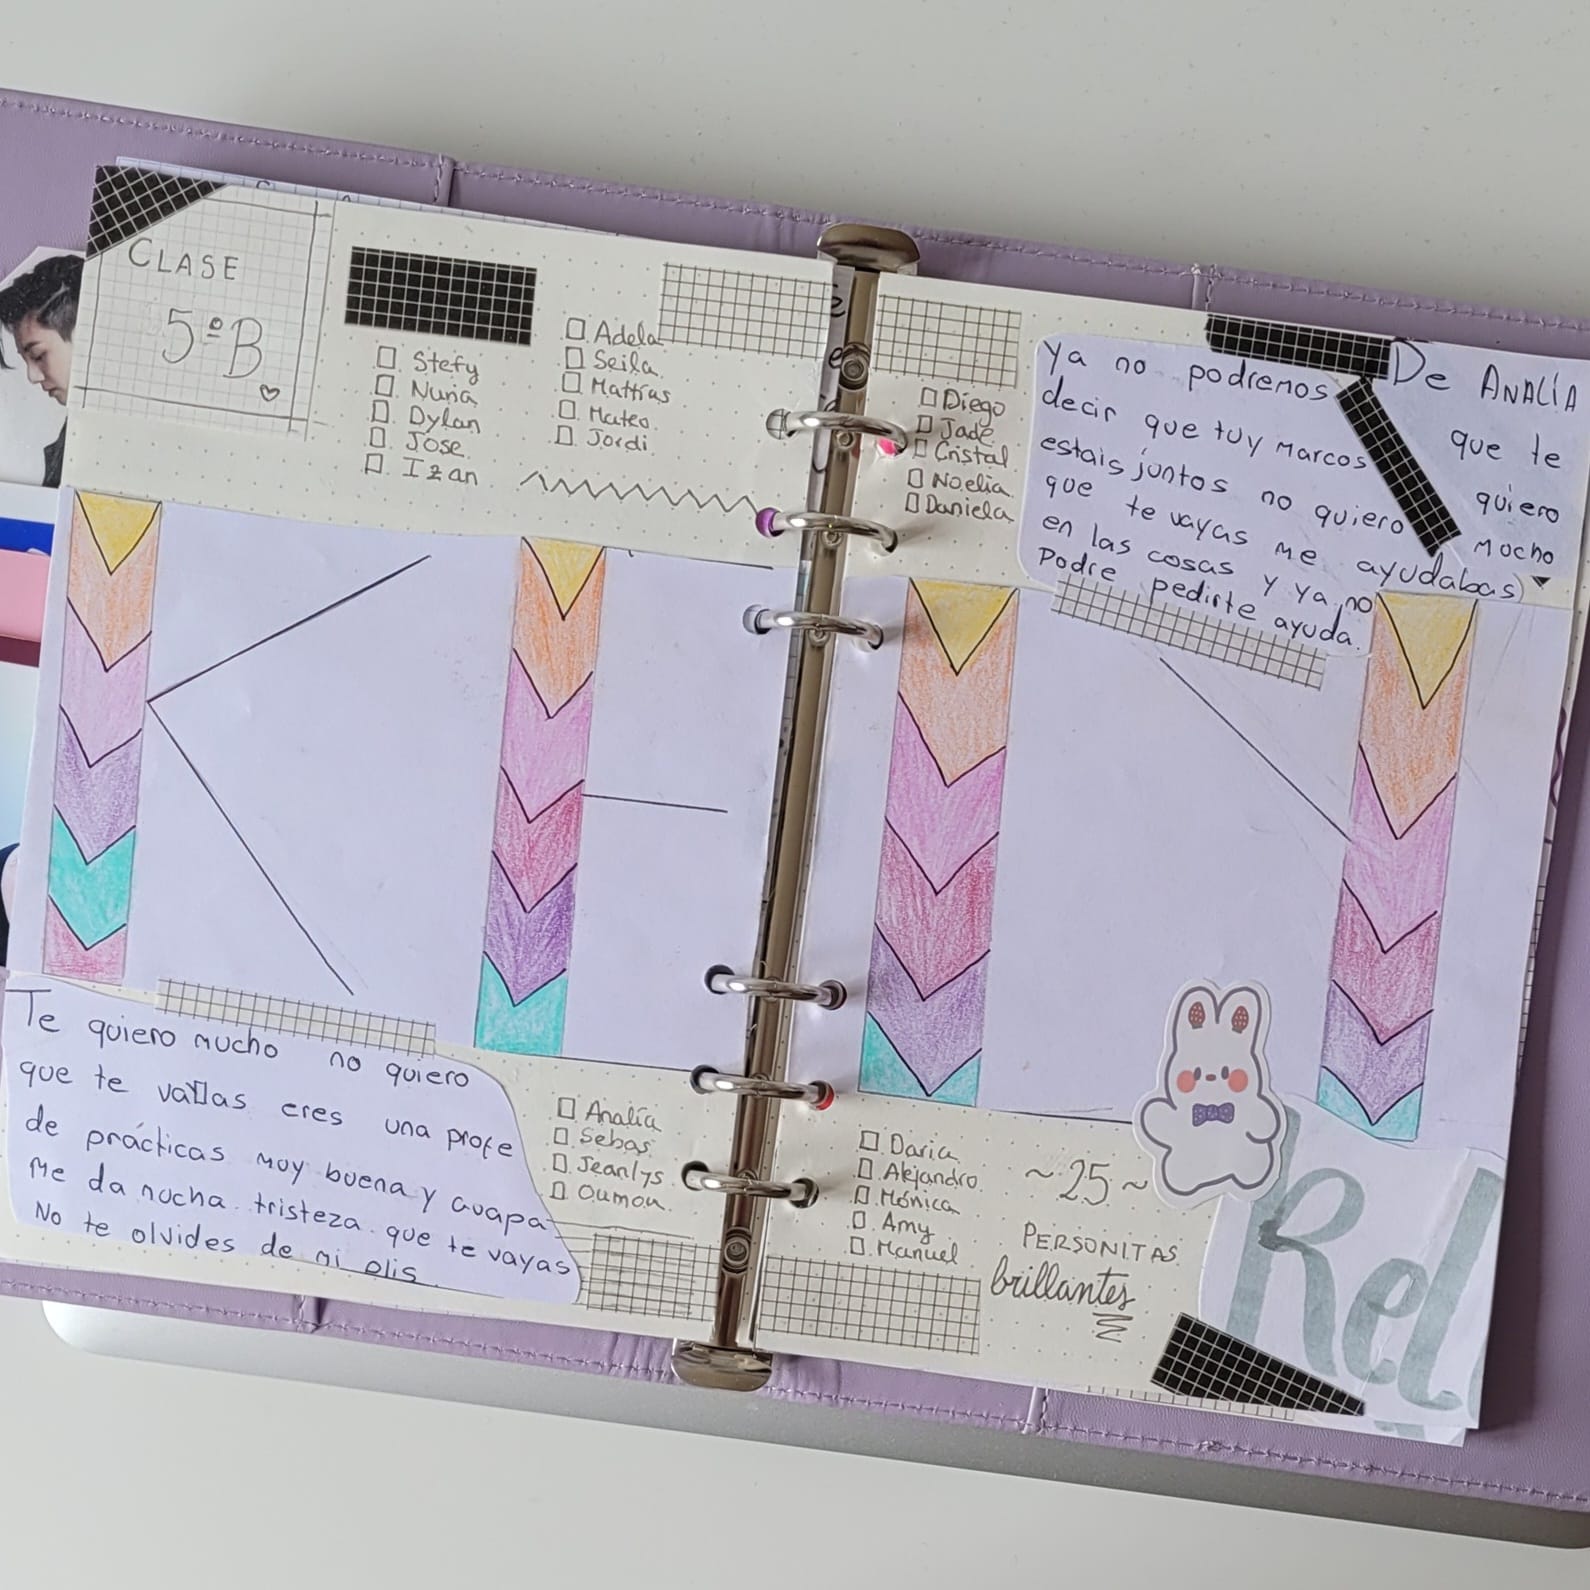 CLASE
5ºB
Stefy
Nuria
Dylan
Jose
Izan
Adela
Seila
Mattías
Mateo
Jordi
Te quiero mucho no quiero
que te vallas eres una profe
de prácticas muy buena y guapa
Me da mucha tristeza que te vayas
No te olvides de mi
Analía
Sebas
Jeanlys
Oumou
Diego
Jade
Cristal
Noelia
Daniela
Ya no podremos
decir que tu y Marcos
estais juntos no quiero
que te vayas me ayudabas
en las cosas y ya no
Podre pedirte ayuda.
De ANALÍA
que te
quiero
mucho
Daria
Alejandro
Mónica
Amy
Manuel
~25~
PERSONITAS
brillantes
Rel